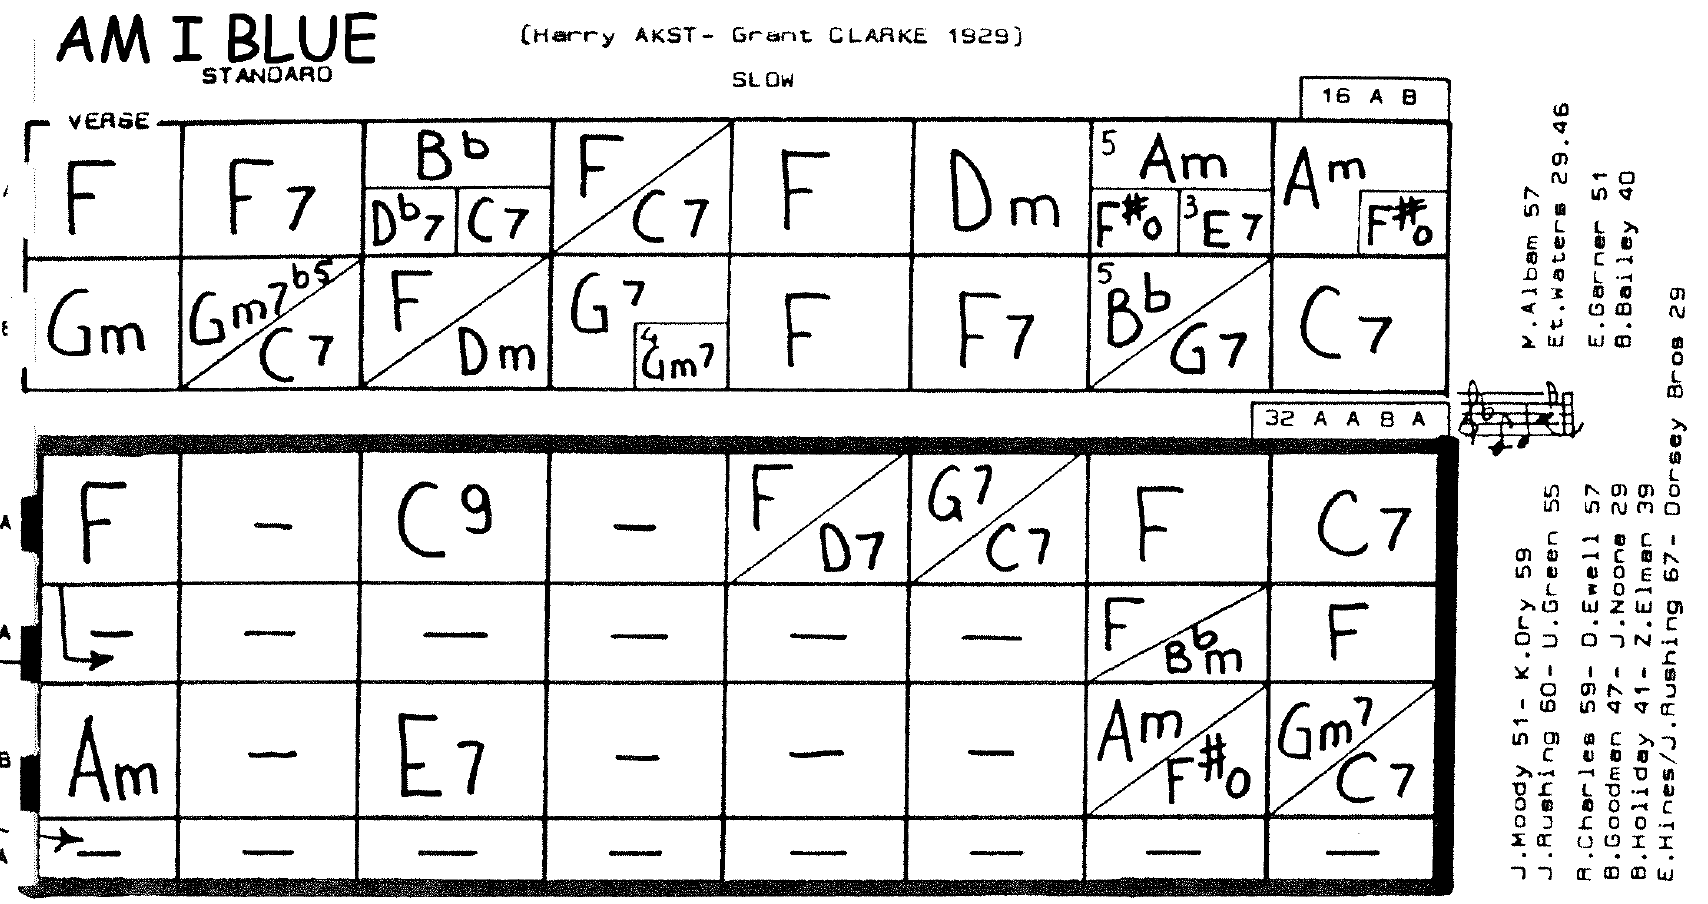 AM I BLUE
(Harry AKST- Grant CLARKE 1929)
STANDARD
SLOW
16 A B
VERSE
F F7 Bb Db7 C7 F C7 F Dm 5 Am F#o 3 E7 Am F#o
Gm Gm7b5 C7 F Dm G7 4 Gm7 F F7 5 Bb G7 C7
32 A A B A
A F - C9 - F D7 G7 C7 F C7
A - - - - - - F Bbm F
B Am - E7 - - - Am F#o Gm7 C7
A - - - - - - - -
M.Alban 57
Et.Waters 29.46
E.Garner 51
B.Bailey 40
J.Moody 51- K.Ory 59
J.Rushing 60- U.Green 55
R.Charles 59- D.Ewell 57
B.Goodman 47- J.Noone 29
B.Holiday 41- Z.Elman 39
E.Hines/J.Rushing 67- Dorsey Bros 29